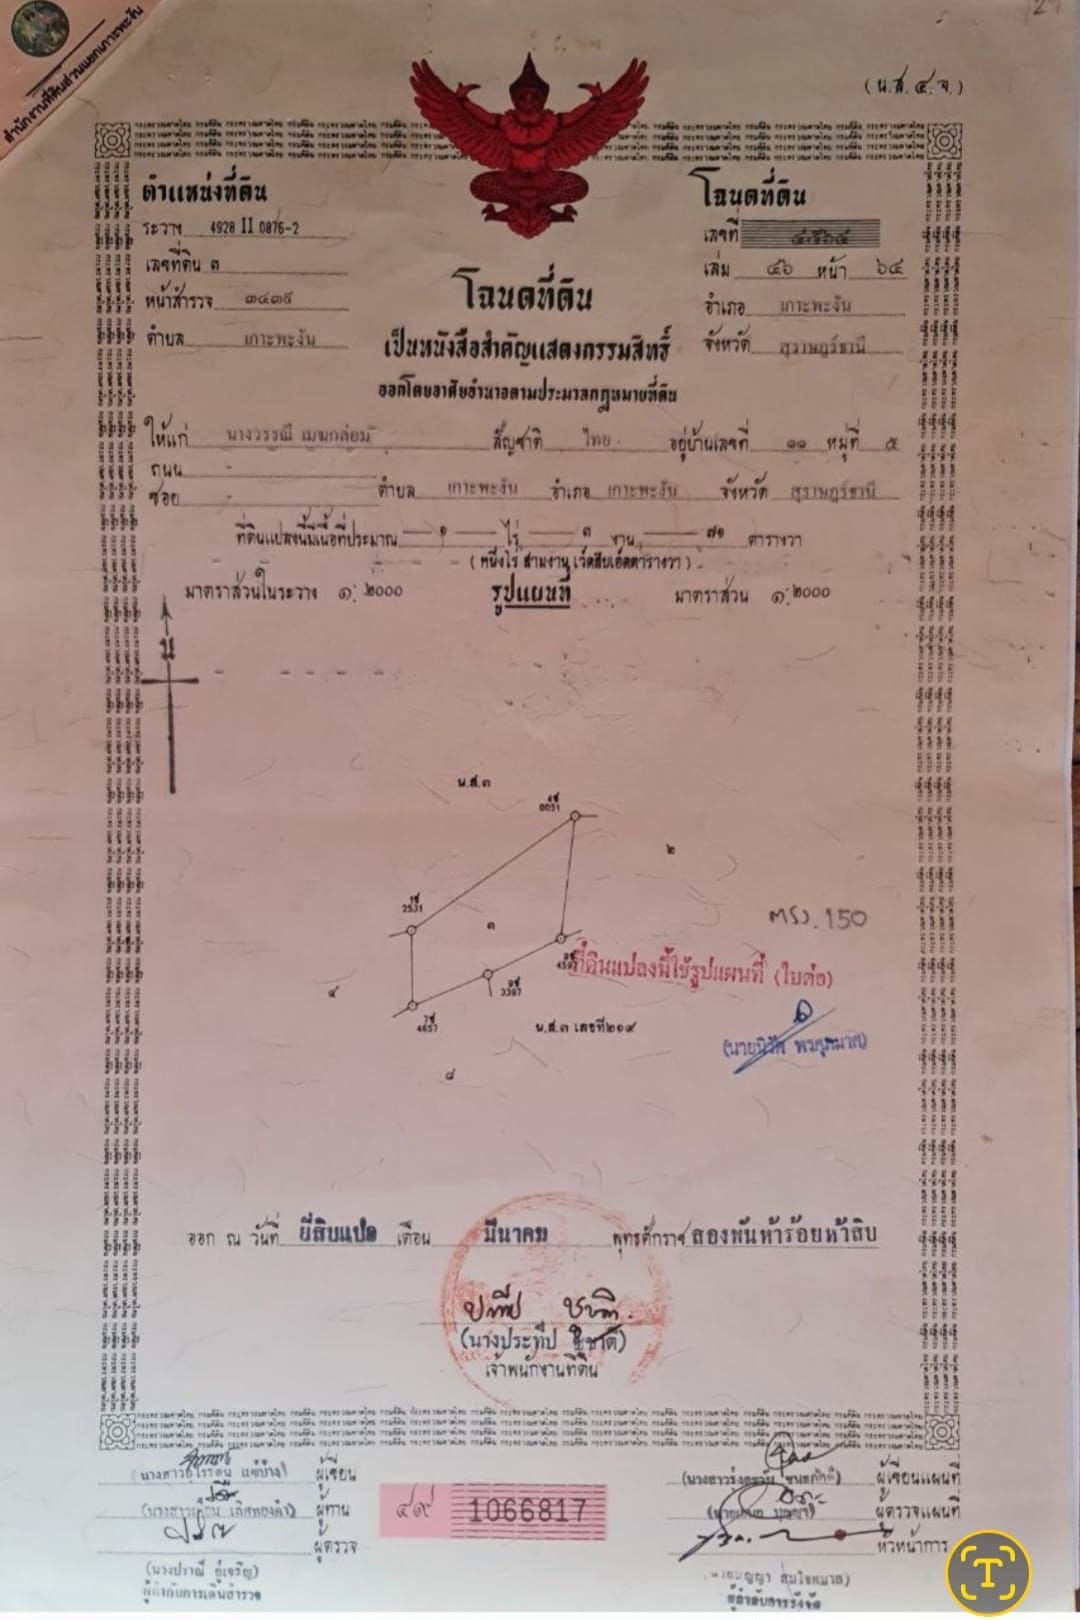 สำนักงานที่ดินส่วนแยกเกาะพะงัน
(น.ส.๔.จ.)
ตำแหน่งที่ดิน
ระวาง 4928 II 0876-2
เลขที่ดิน ๓
หน้าสำรวจ ๓๔๓๕
ตำบล เกาะพะงัน
โฉนดที่ดิน
เลขที่ ๔๕๖๔
เล่ม ๔๖ หน้า ๖๔
อำเภอ เกาะพะงัน
จังหวัด สุราษฎร์ธานี
โฉนดที่ดิน
เป็นหนังสือสำคัญแสดงกรรมสิทธิ์
ออกโดยอาศัยอำนาจตามประมวลกฎหมายที่ดิน
ให้แก่ นางวรรณี เมฆกล่อม สัญชาติ ไทย อยู่บ้านเลขที่ ๑๑ หมู่ที่ ๕
ถนน -
ซอย - ตำบล เกาะพะงัน อำเภอ เกาะพะงัน จังหวัด สุราษฎร์ธานี
ที่ดินแปลงนี้มีเนื้อที่ประมาณ ๑ ไร่ ๓ งาน ๗๑ ตารางวา
(หนึ่งไร่ สามงาน เจ็ดสิบเอ็ดตารางวา)
มาตราส่วนในระวาง ๑:๒๐๐๐ รูปแผนที่ มาตราส่วน ๑:๒๐๐๐
น
น.ส.๓
0051
๒
2531
๓
ที่ดินแปลงนี้ใช้รูปแผนที่ (ใบต่อ)
๔
3387
4657
น.ส.๓ เลขที่๒๑๙
๘
ออก ณ วันที่ ยี่สิบแปด เดือน มีนาคม พุทธศักราช สองพันห้าร้อยห้าสิบ
(นางประทีป ชูชาติ)
เจ้าพนักงานที่ดิน
ผู้เขียน
ผู้ทาน
ผู้ตรวจ
(นางปราณี อู่เจริญ)
ผู้กำกับการเดินสำรวจ
๔๙ 1066817
ผู้เขียนแผนที่
ผู้ตรวจแผนที่
หัวหน้าการ
ผู้กำกับการรังวัด